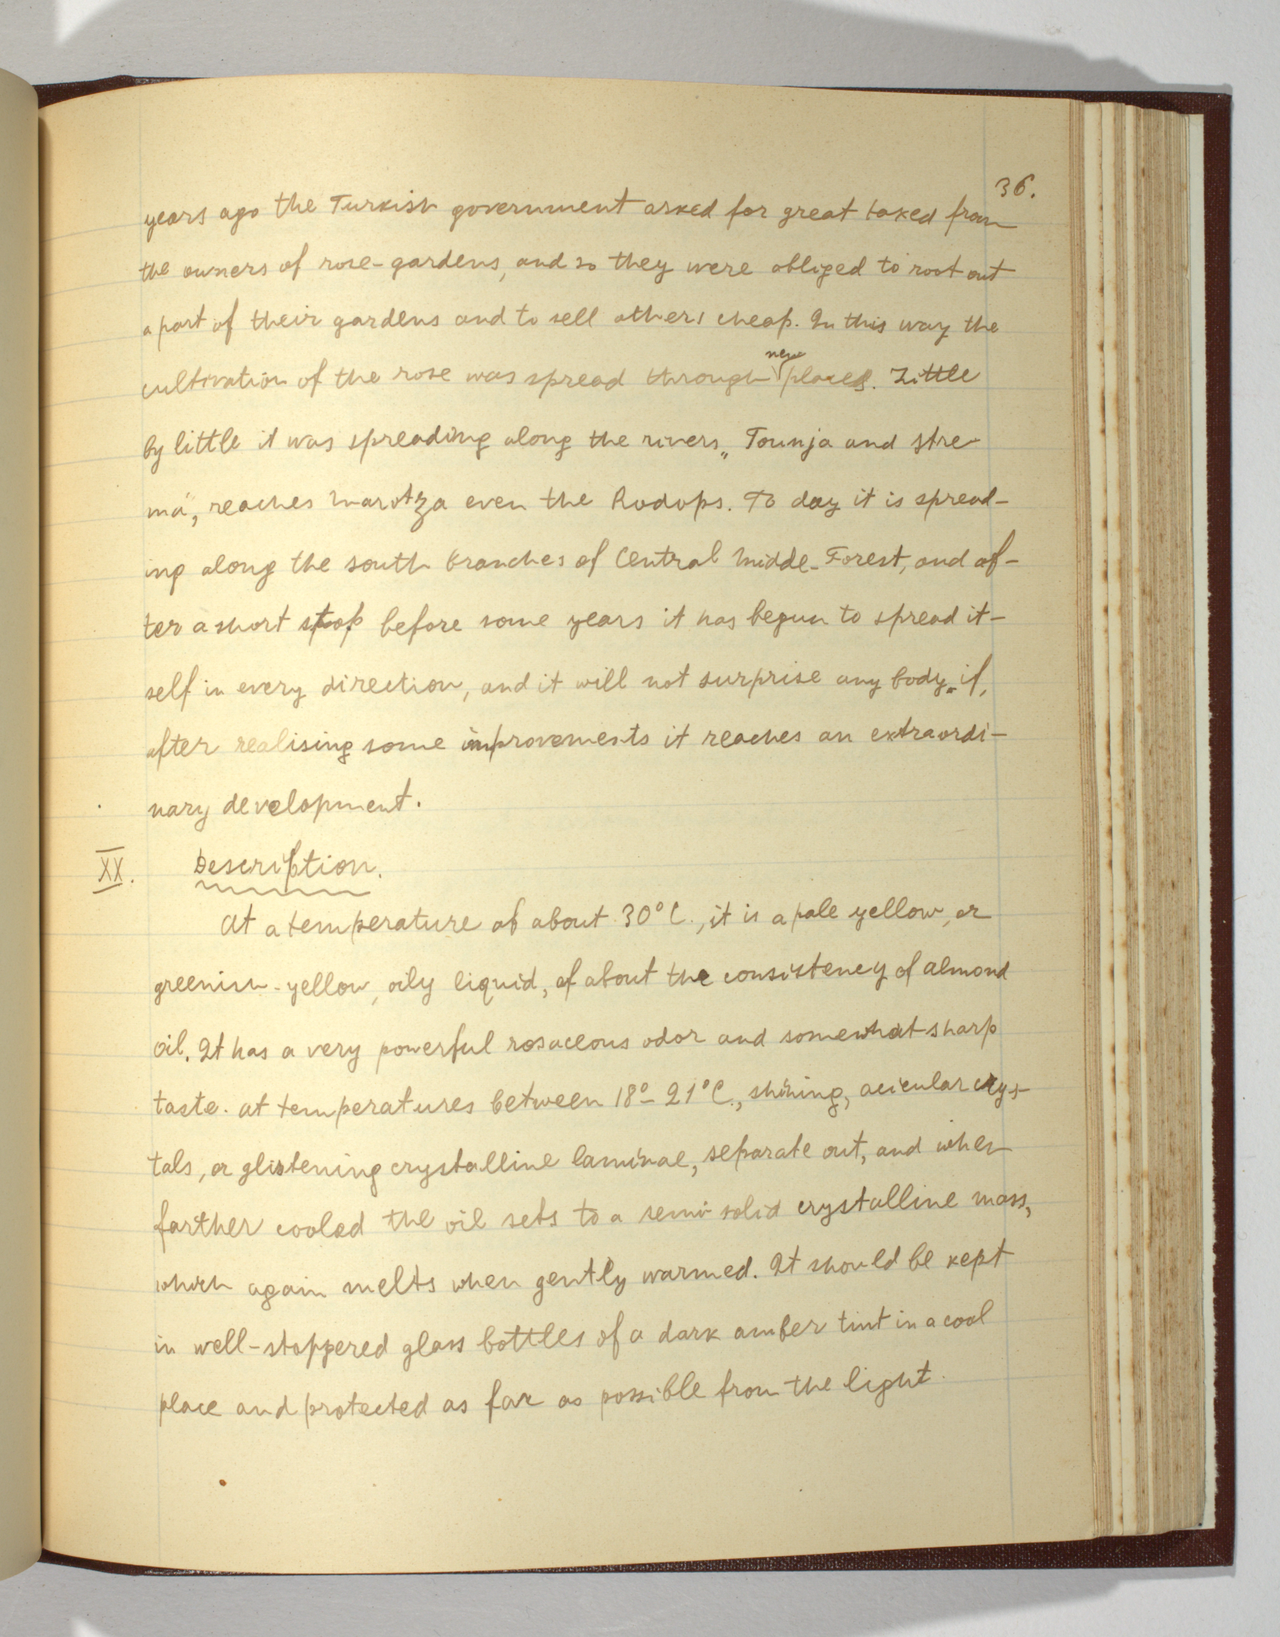 36.
years ago the Turkish government asked for great taxed from
the owners of rose-gardens, and so they were obliged to root out
a part of their gardens and to sell others cheap. In this way the
cultivation of the rose was spread through new places. Little
by little it was spreading along the rivers „Tounja and Stre-
ma“, reaches Marotza even the Rodops. To day it is spread-
ing along the south branches of Central Midde-Forest, and af-
ter a short stop before some years it has begun to spread it-
self in every direction, and it will not surprise any body, if,
after realising some improvements it reaches an extraordi-
nary development.
XX. Description.
At a temperature of about 30°C., it is a pale yellow, or
greenish-yellow, oily liquid, of about the consistency of almond
oil. It has a very powerful rosaceous odor and somewhat sharp
taste. at temperatures between 18°-21°C., shining, acicular crys-
tals, or glistening crystalline laminae, separate out, and when
farther cooled the oil sets to a semi solid crystalline mass,
which again melts when gently warmed. It should be kept
in well-stoppered glass bottles of a dark amber tint in a cool
place and protected as far as possible from the light.